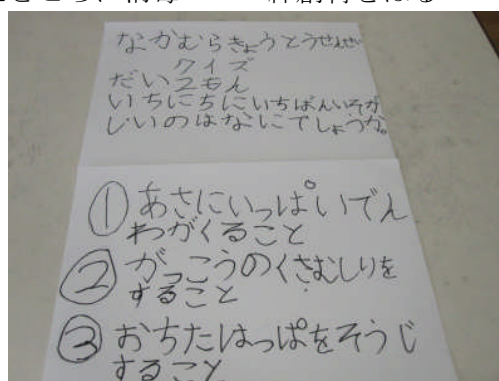 なかむらきょうとうせんせい
クイズ
だい2もん
いちにちにいちばんいそが
しいのはなにでしょうか。
① あさにいっぱいでん
わがくること
② がっこうのくさむしりを
すること
③ おちたはっぱをそうじ
すること